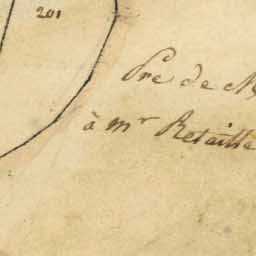 201
Pré de
à mr Retaill